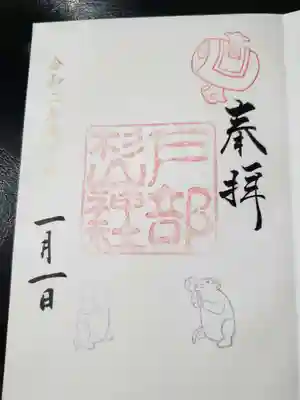 奉拝
戸部
杉山神社
令和二年
一月一日